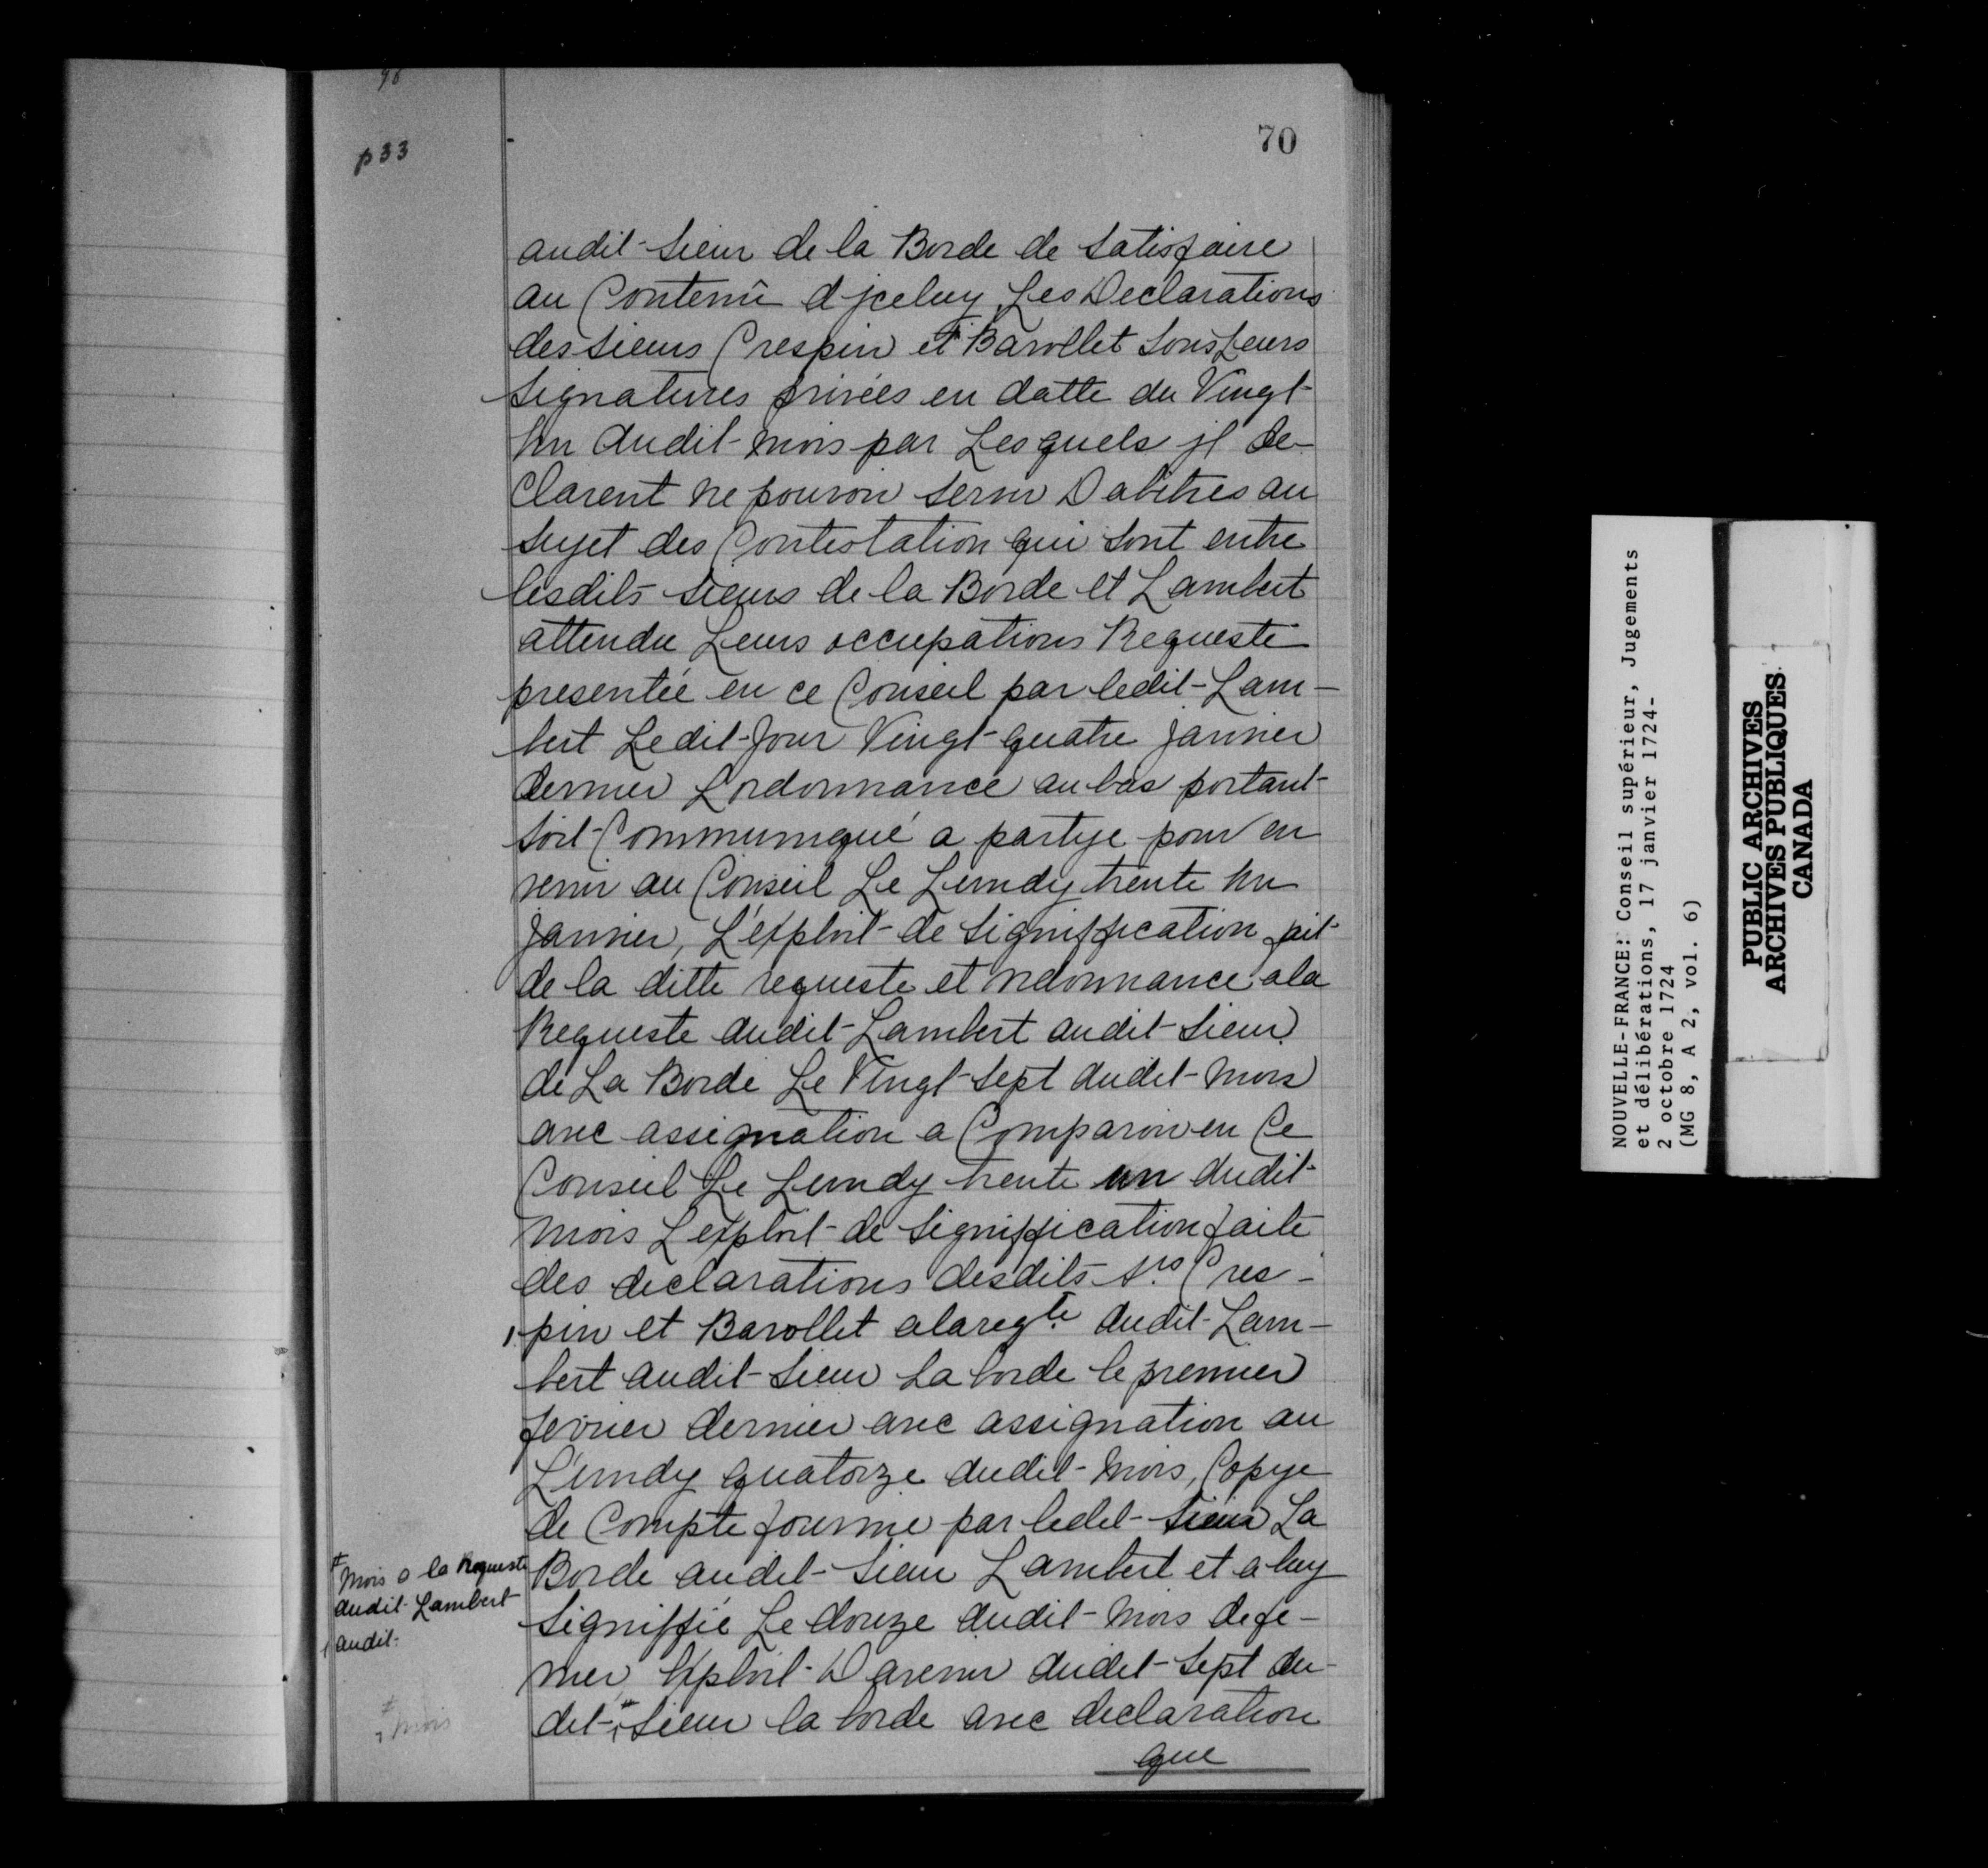 p 33
70
audit Sieur de la Borde de Satisfaire
au Contenû d jceluy Les Declarations
des sieurs Crespin et Barollet Sous Leurs
Signatures privées en datte du Vingt
Un dudit mois par Lesquels jl de-
Clarent ne pouvoir servir D abitres au
Sujet des Contestation qui Sont entre
lesdits sieurs de la Borde et Lambert
attendu Leurs occupations Requeste
presentée en ce Conseil par ledit Lam-
bert Ledit Jour Vingt quatre Janvier
dernier Lordonnance au bas portant
Soit Communiqué a partye pour en
venir au Conseil Le Lundy trente Un
Janvier, L'exploit de Signiffication fait
de la ditte requeste et ordonnance a la
Requeste dudit Lambert audit Sieur
de La Borde Le Vingt Sept dudit Mois
avec assignation a Comparoir en Ce
Conseil Le Lundy trente un dudit
Mois L exploit de Signiffication faite
des declarations desdits Srs Cres-
pin et Barollet a la reqte dudit Lam-
bert audit Sieur La borde le premier
fevrier dernier avec assignation au
Lundy quatorze dudit Mois, Copye
de Compte fournie par ledit Sieur La
Borde audit Sieur Lambert et a luy
Signiffié Le douze dudit Mois de fe-
vrier, Exploit D avenir dudit Sept du-
dit ǂ Sieur la borde avec declaration
que
ǂ Mois a la Requeste
dudit Lambert
audit
ǂ mois
NOUVELLE-FRANCE: Conseil supérieur, Jugements
et délibérations, 17 janvier 1724-
2 octobre 1724
(MG 8, A 2, vol. 6)
PUBLIC ARCHIVES
ARCHIVES PUBLIQUES
CANADA